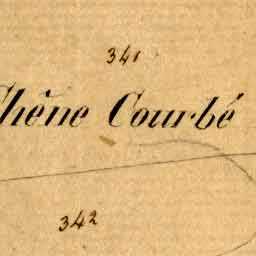 341
Chêne Courbé
342